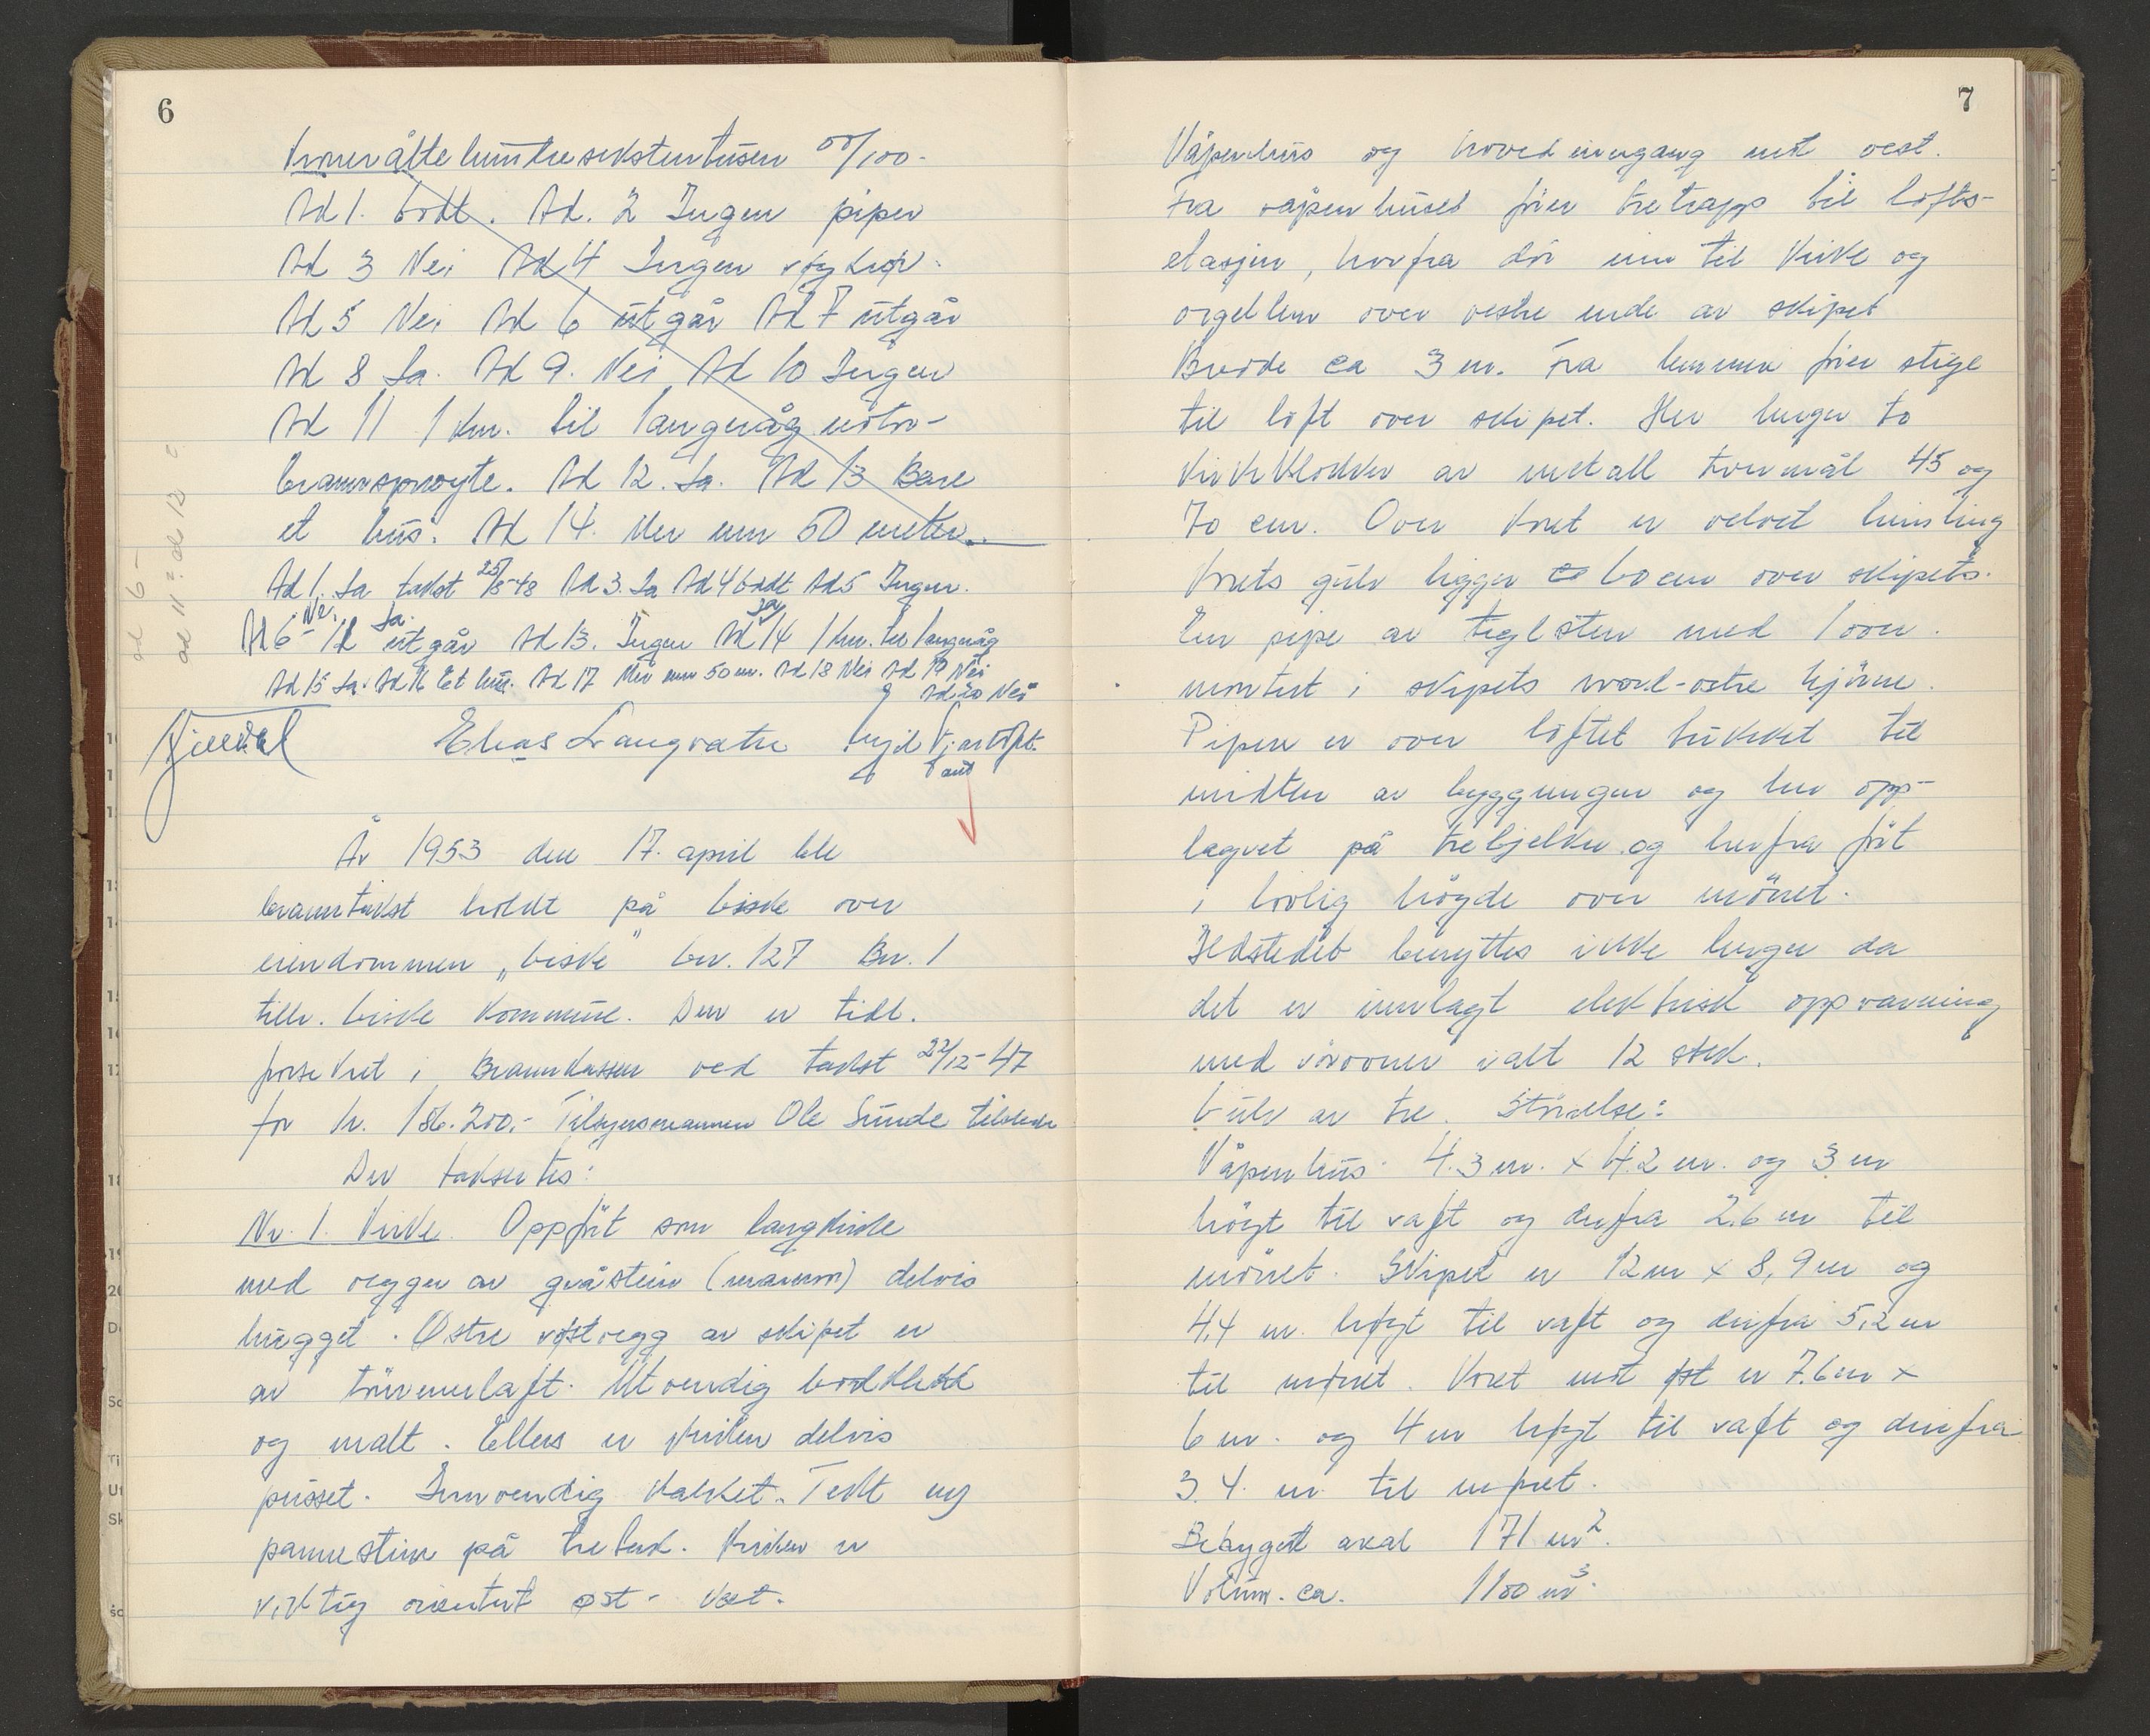 6
Kroner åtte hundre seksten tusen 00/100.-
Ad 1. Godt. Ad. 2 Ingen piper
Ad 3 Nei Ad 4 Ingen
Ad 5 Nei Ad 6 utgår Ad 7 utgår
Ad 8 Ja. Ad 9. Nei Ad 10 Ingen
Ad 11 1 km. til Langevåg motor-
brannsprøyte. Ad 12. Ja. Ad 13 Bare
et hus. Ad 14. Mer enn 50 meter.
Ad 1. Ja takst 25/8-48 Ad 3. Ja Ad 4 Godt Ad 5 Ingen.
Ad 6 - Nei. 12 Ja. utgår Ad 13. Ingen Ad 14 Ja 1 km. til Langevåg
Ad 15 Ja. Ad 16 Et hus. Ad 17 Mer enn 50 m. Ad 18 Nei Ad 19 Nei
Ad 20 Nei
Elias Langvatn
ad 6 -
ad 11 ? ad 12 ?
År 1953 den 17. april ble
branntakst holdt på Giske over
eiendommen „Giske" Gr. 127 Br. 1
tilh. Giske kommune. Den er tidl.
forsikret i Brannkassen ved takst 22/12-47
for kr. 186.200.- Tilsynsmannen Ole Sunde tilstede
Der taksertes:
Nr. 1. Kirke. Oppført som langkirke
med vegger av gråstein (marmor) delvis
hugget. Østre røstvegg av skipet er
av tømmerlaft. Utvendig bordkledd
og malt. Ellers er kirken delvis
pusset. Innvendig kalket. Tekt m/
pannestein på tretak. Kirken er
riktig orientert øst - vest.
7
Våpenhus og hovedinngang mot vest.
Fra våpenhuset fører tretrapp til lofts-
etasjen, hvorfra dör inn til kirke og
orgellem over vestre ende av skipet
Bredde ca 3 m. Fra lemmen fører stige
til loft over skipet. Her henger to
kirkeklokker av metall tverrmål 45 og
70 cm. Over koret er velvet himling
Korets gulv ligger 60 cm over skipets.
En pipe av teglsten med 1 ovn.
montert i skipets nord-østre hjörne.
Pipen er over loftet trukket til
midten av byggningen og her opp-
lagret på trebjelker og herfra fört
i lovlig högde over mönet.
Ildstedet benyttes ikke lenger da
det er innlagt elektrisk oppvarming
med rörovner ialt 12 stck.
Gulv av tre. Störrelse:
Våpenhus: 4.3 m. x 4.2 m. og 3 m
högt til raft og derfra 2.6 m til
mönet. Skipet er 12 m x 8,9 m og
4,4 m. høgt til raft og derfra 5,2 m
til mønet. Koret mot øst er 7.6 m x
6 m. og 4 m høgt til raft og derfra
3.4. m til mønet.
Bebygget areal 171 m2.
Volum. ca. 1100 m3.